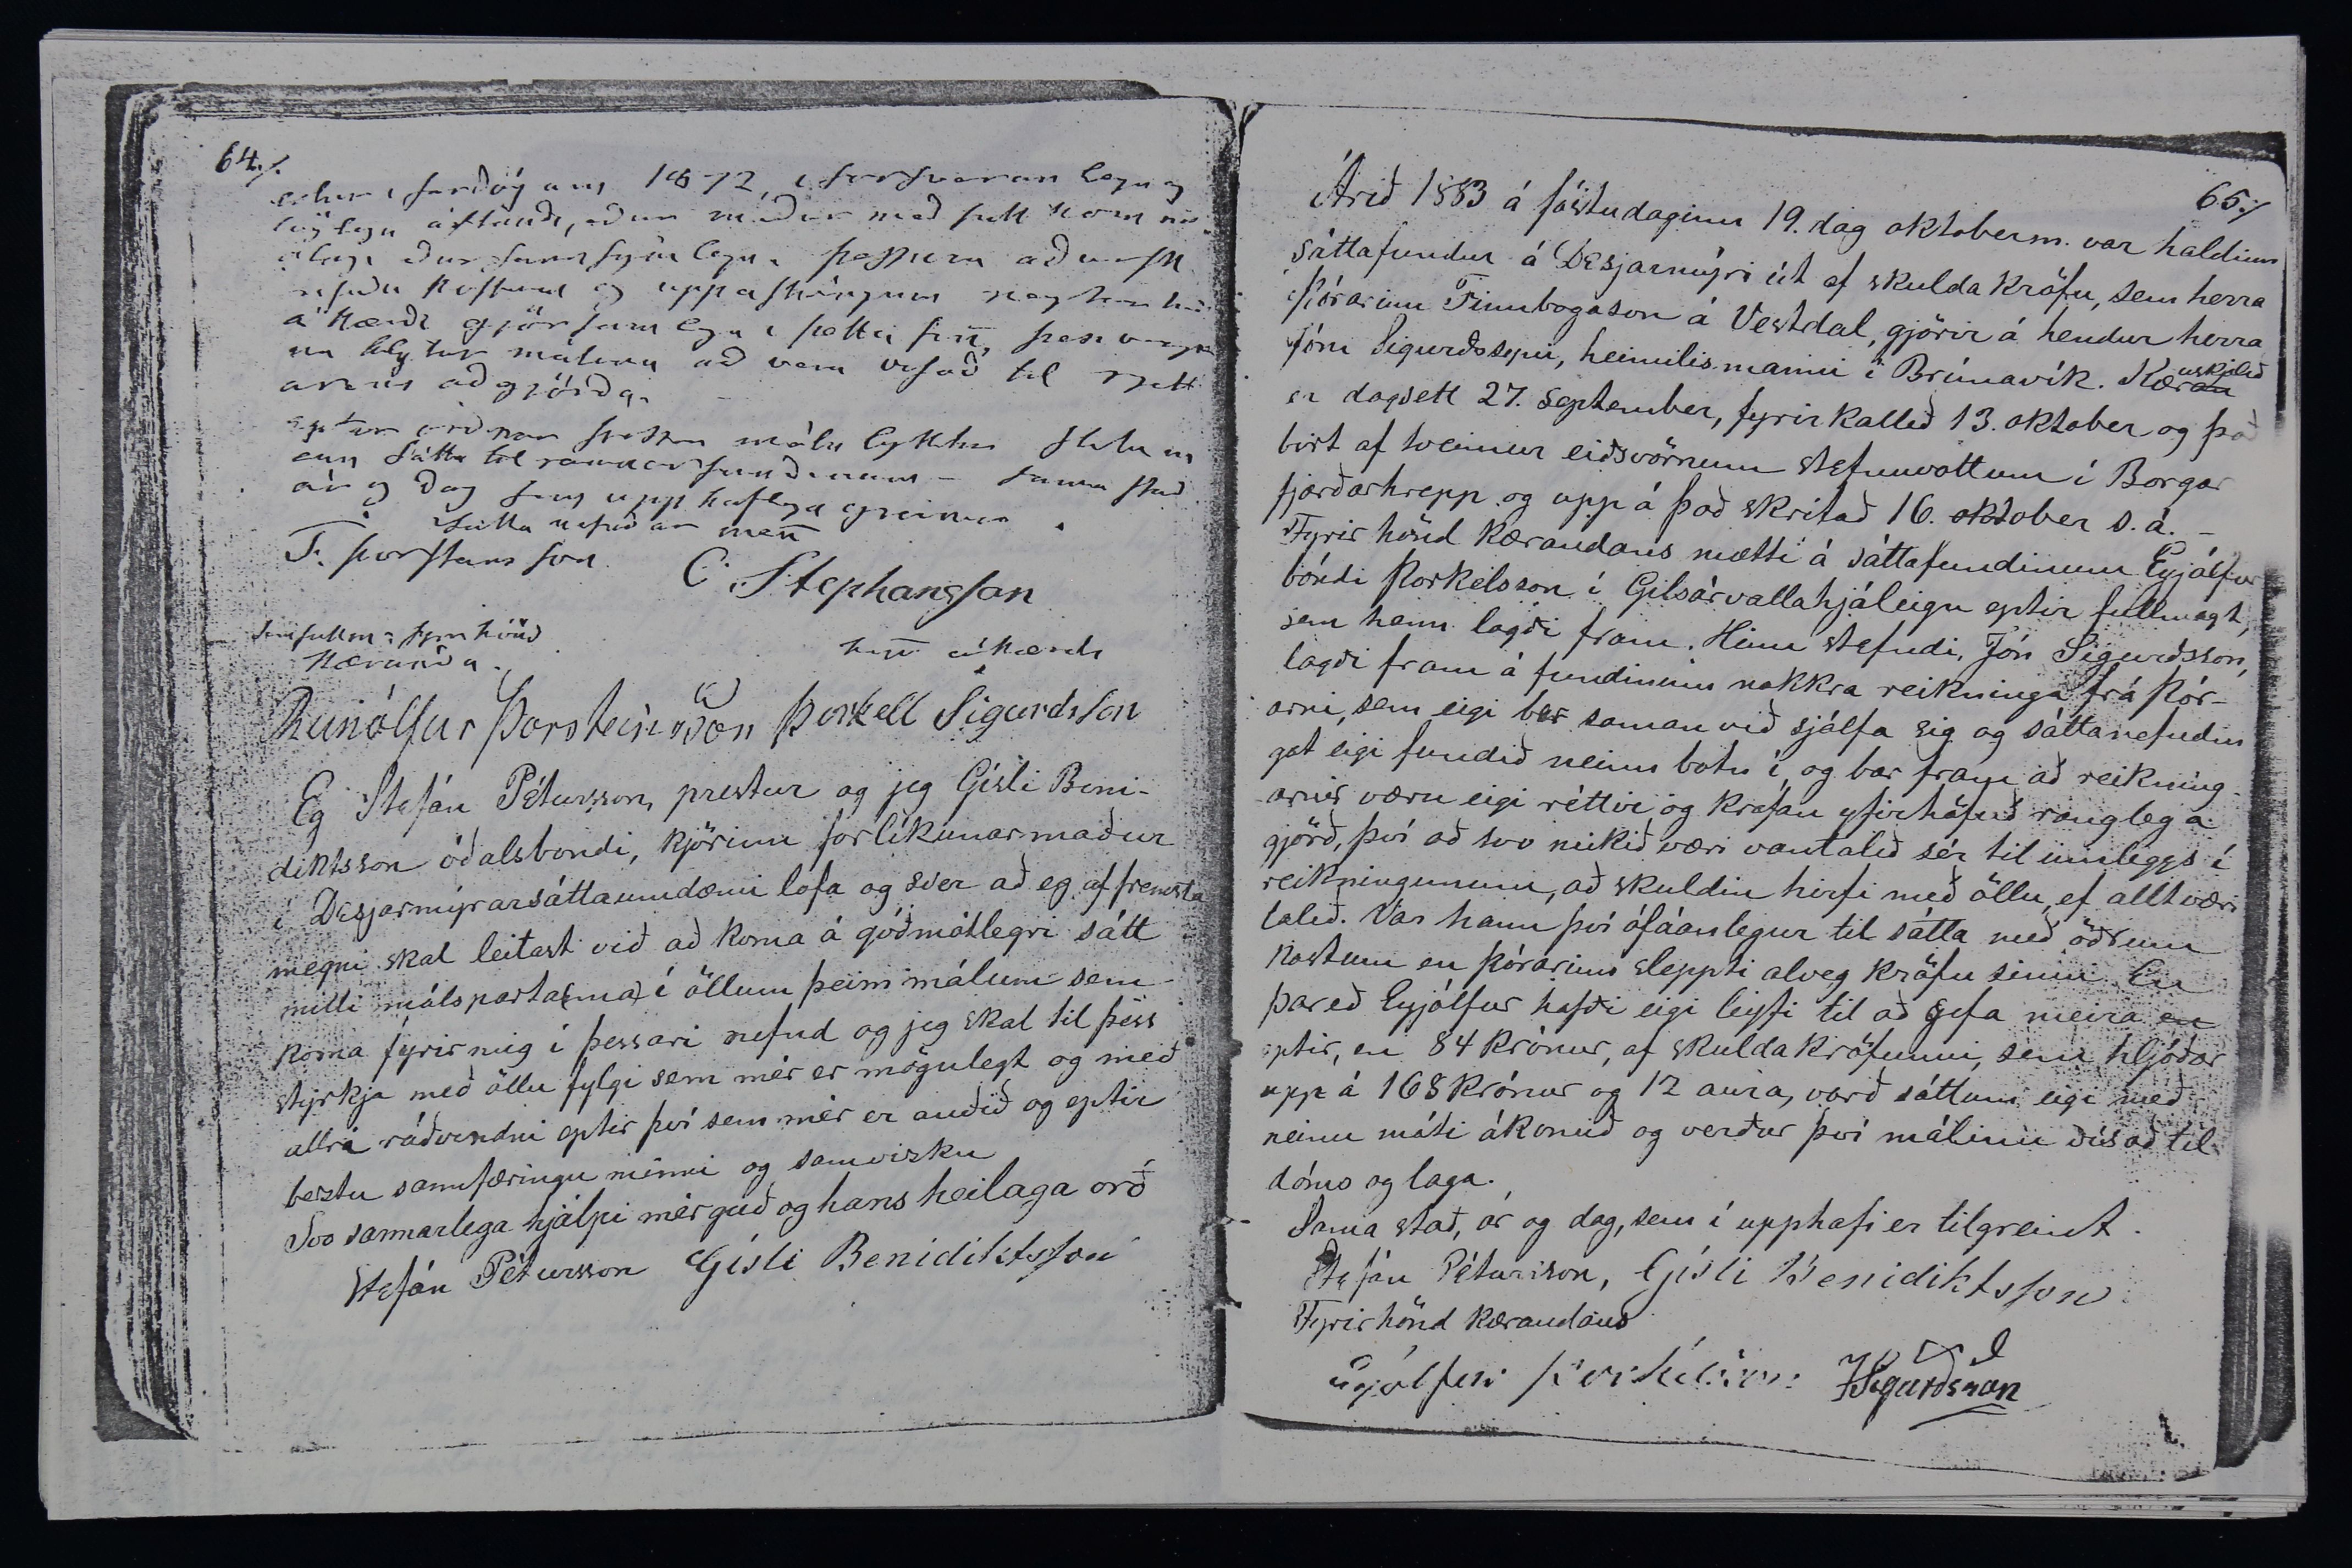 64./.
fardögum 1872, í forsvaranlegu og
löglegu ástandi, eður
eður þessum
kostum og uppástúngum
ákærdi í þetta sinn, þess vegna
málinu að vera vísað til rjett
arens aðgjörda.
Eptir þessum mála
sátta til sama stad
ár og dag sem upphaflega greinir
Sátta nefndar menn
Þorsteinsson C. Stephansson
fyrir hönd
Kæranda. ákærdi
Runólfur Þorsteinsson Þorkell Sigurdsson
Eg Stefán Pétursson, prestur og jeg Gísli Beni-
diktsson óðalsbondi, kjörinn forlíkunarmaður
í Desjarmýrarsáttaumdæmi lofa og sver að eg af fremsta
megni skal leitast við að koma á góðmótlegri sátt
milli málsparta(nna) í öllum þeim málum sem
koma fyrir mig í þessari nefnd og jeg skal til þess
styrkja með öllu fylgi sem mér er mögulegt og með
allri ráðvendni eptir því sem mér er auðið og eptir
beztu sannfæringu minni og samvizku
Svo sannarlega hjálpi mér guð og hans heilaga orð
Stefán Pétursson Gísli Benidiktsson
65./
Árið 1883 á föstudaginn 19. dag oktoberm. var haldinn
sáttafundur á Desjarmýri út af skuldakröfu, sem herra
Þórarinn Finnbogason á Vestdal, gjörir á hendur herra
Jóni Sigurðssyni, heimilismanni í Brúnavík. Kæruskjalið
er dagsett 27. september, fyrirkallið 13. oktober og það
birt af tveimur eiðsvörnum stefnuvottum í Borgar
fjarðarhrepp og uppá það skrifað 16. oktober s.á. –
Fyrir hönd kærandans mætti á sáttafundinum Eyjólfur
bóndi Þorkelsson í Gilsárvallahjáleigu eptir fullmagt,
sem hann lagði fram. Hinn stefndi, Jón Sigurðsson,
lagði fram á fundinum nokkra reikninga frá Þór-
arni, sem eigi ber saman við sjálfa sig og sáttanefndin
gat eigi fundið neinn botn í, og bar fram að reikning-
arnir væru eigi réttir og krafan yfirhöfuð ranglega
gjörð, því að svo mikið væri vantalið sér til innleggs í
reikningunum, að skuldin hirfi með öllu, ef allt væri
talið. Var hann því ófáanlegur til sátta með öðrum
kostum en Þórarinn sleppti alveg kröfu sinni. En
þareð Eyjólfur hafði eigi leyfi til að gefa meira en
eptir, en 84 krónur, af skuldakröfunni, sem hljóðar
uppá 168 krónur og 12 aura, varð sáttum eigi með
neinu móti ákomið og verður því málinu vísað til
dóms og laga.
Sama stað, ár og dag, sem í upphafi er tilgreint.
Stefán Pétursson, Gísli Benidiktsson
Fyrir hönd kærandans
Eyjólfur Þorkelsson JSigurðsson